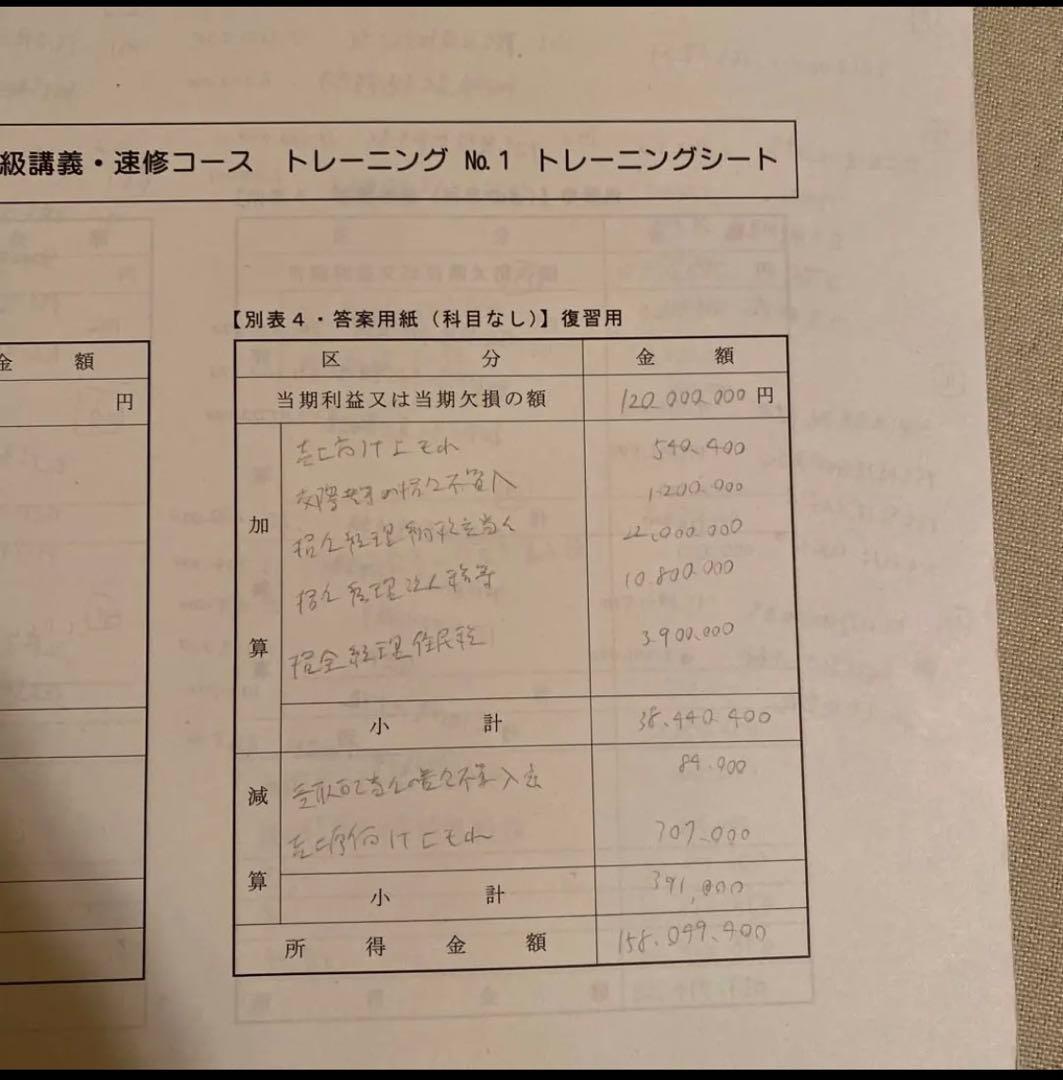 級講義・速修コース トレーニング №1 トレーニングシート
金 額
円
【別表4・答案用紙（科目なし）】復習用
区 分 金 額
当期利益又は当期欠損の額 120.000.000 円
加 算
売上計上もれ 540.400
交際費等の損金不算入 1.200.000
損金経理納税充当金 22.000.000
損金経理法人税等 10.800.000
損金経理住民税 3.900.000
小 計 38.440.400
減 算
受取配当金の益金不算入 84.000
売上原価計上もれ 307.000
小 計 391,000
所 得 金 額 158.049.400